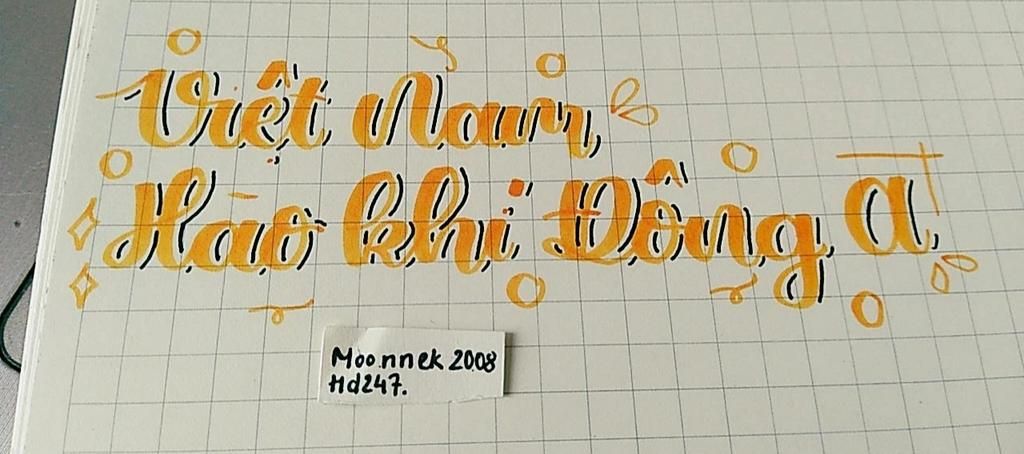 Việt Nam
Hào khi Đông A
Moonnek 2008
Hd247.